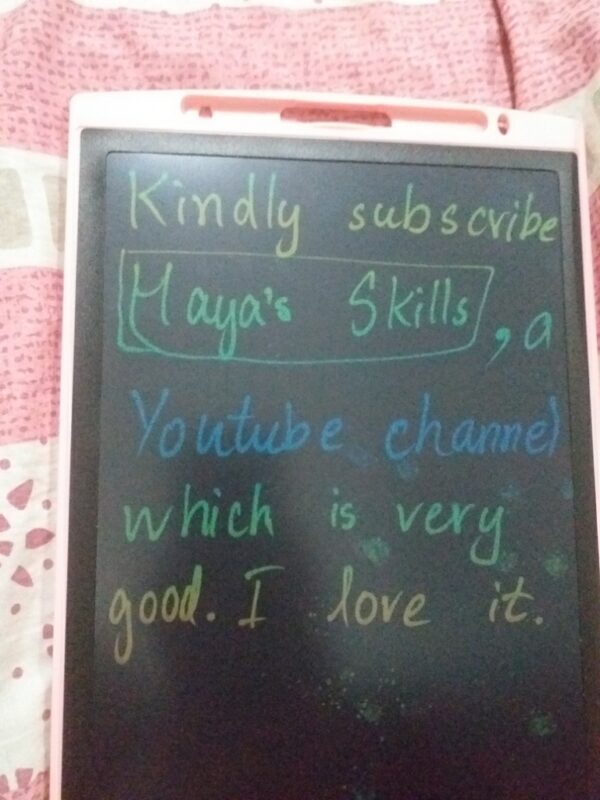 Kindly subscribe
Haya's Skills, a
Youtube channel
which is very
good. I love it.